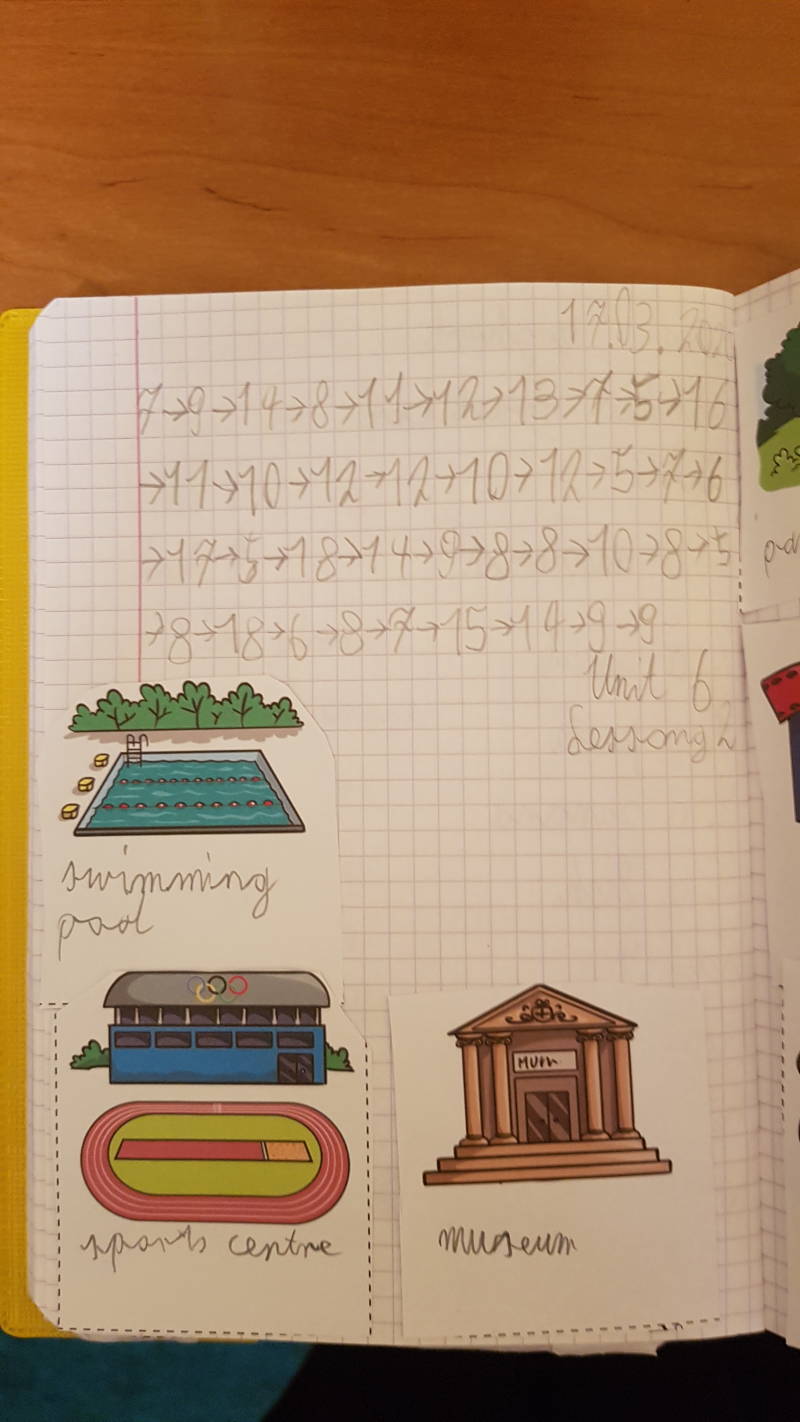 17.03.202
7→9→14→8→11→12→13→7→5→16
→11→10→12→12→10→12→5→7→6
→17→5→18→14→9→8→8→10→8→5
→8→18→6→8→7→15→14→9→9
Unit 6
swimming
pool
sports centre
museum